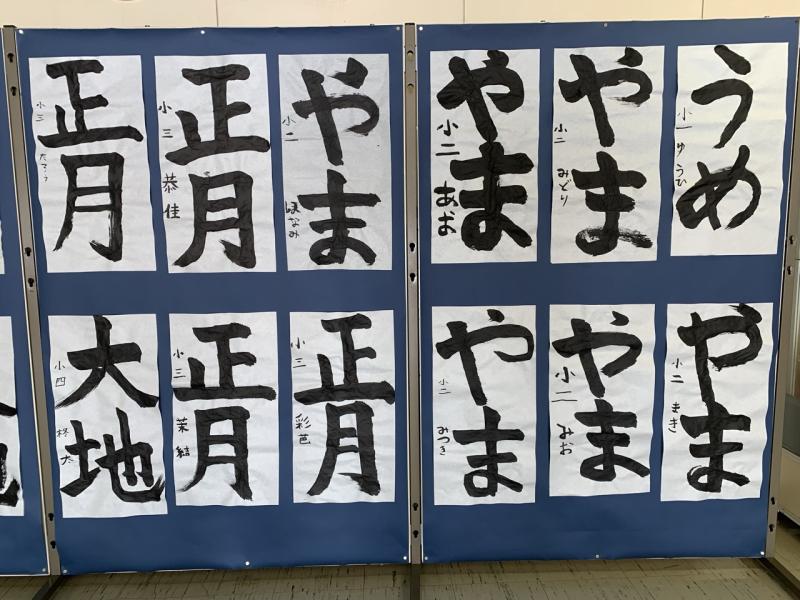 うめ
小一 ゆうひ
やま
小二 みどり
やま
小二 あお
やま
小二 まき
やま
小二 みお
やま
小二 みつき
やま
小二 ほなみ
正月
小三 恭佳
正月
小三
正月
小三 彩芭
正月
小三 茉結
大地
小四 柊太